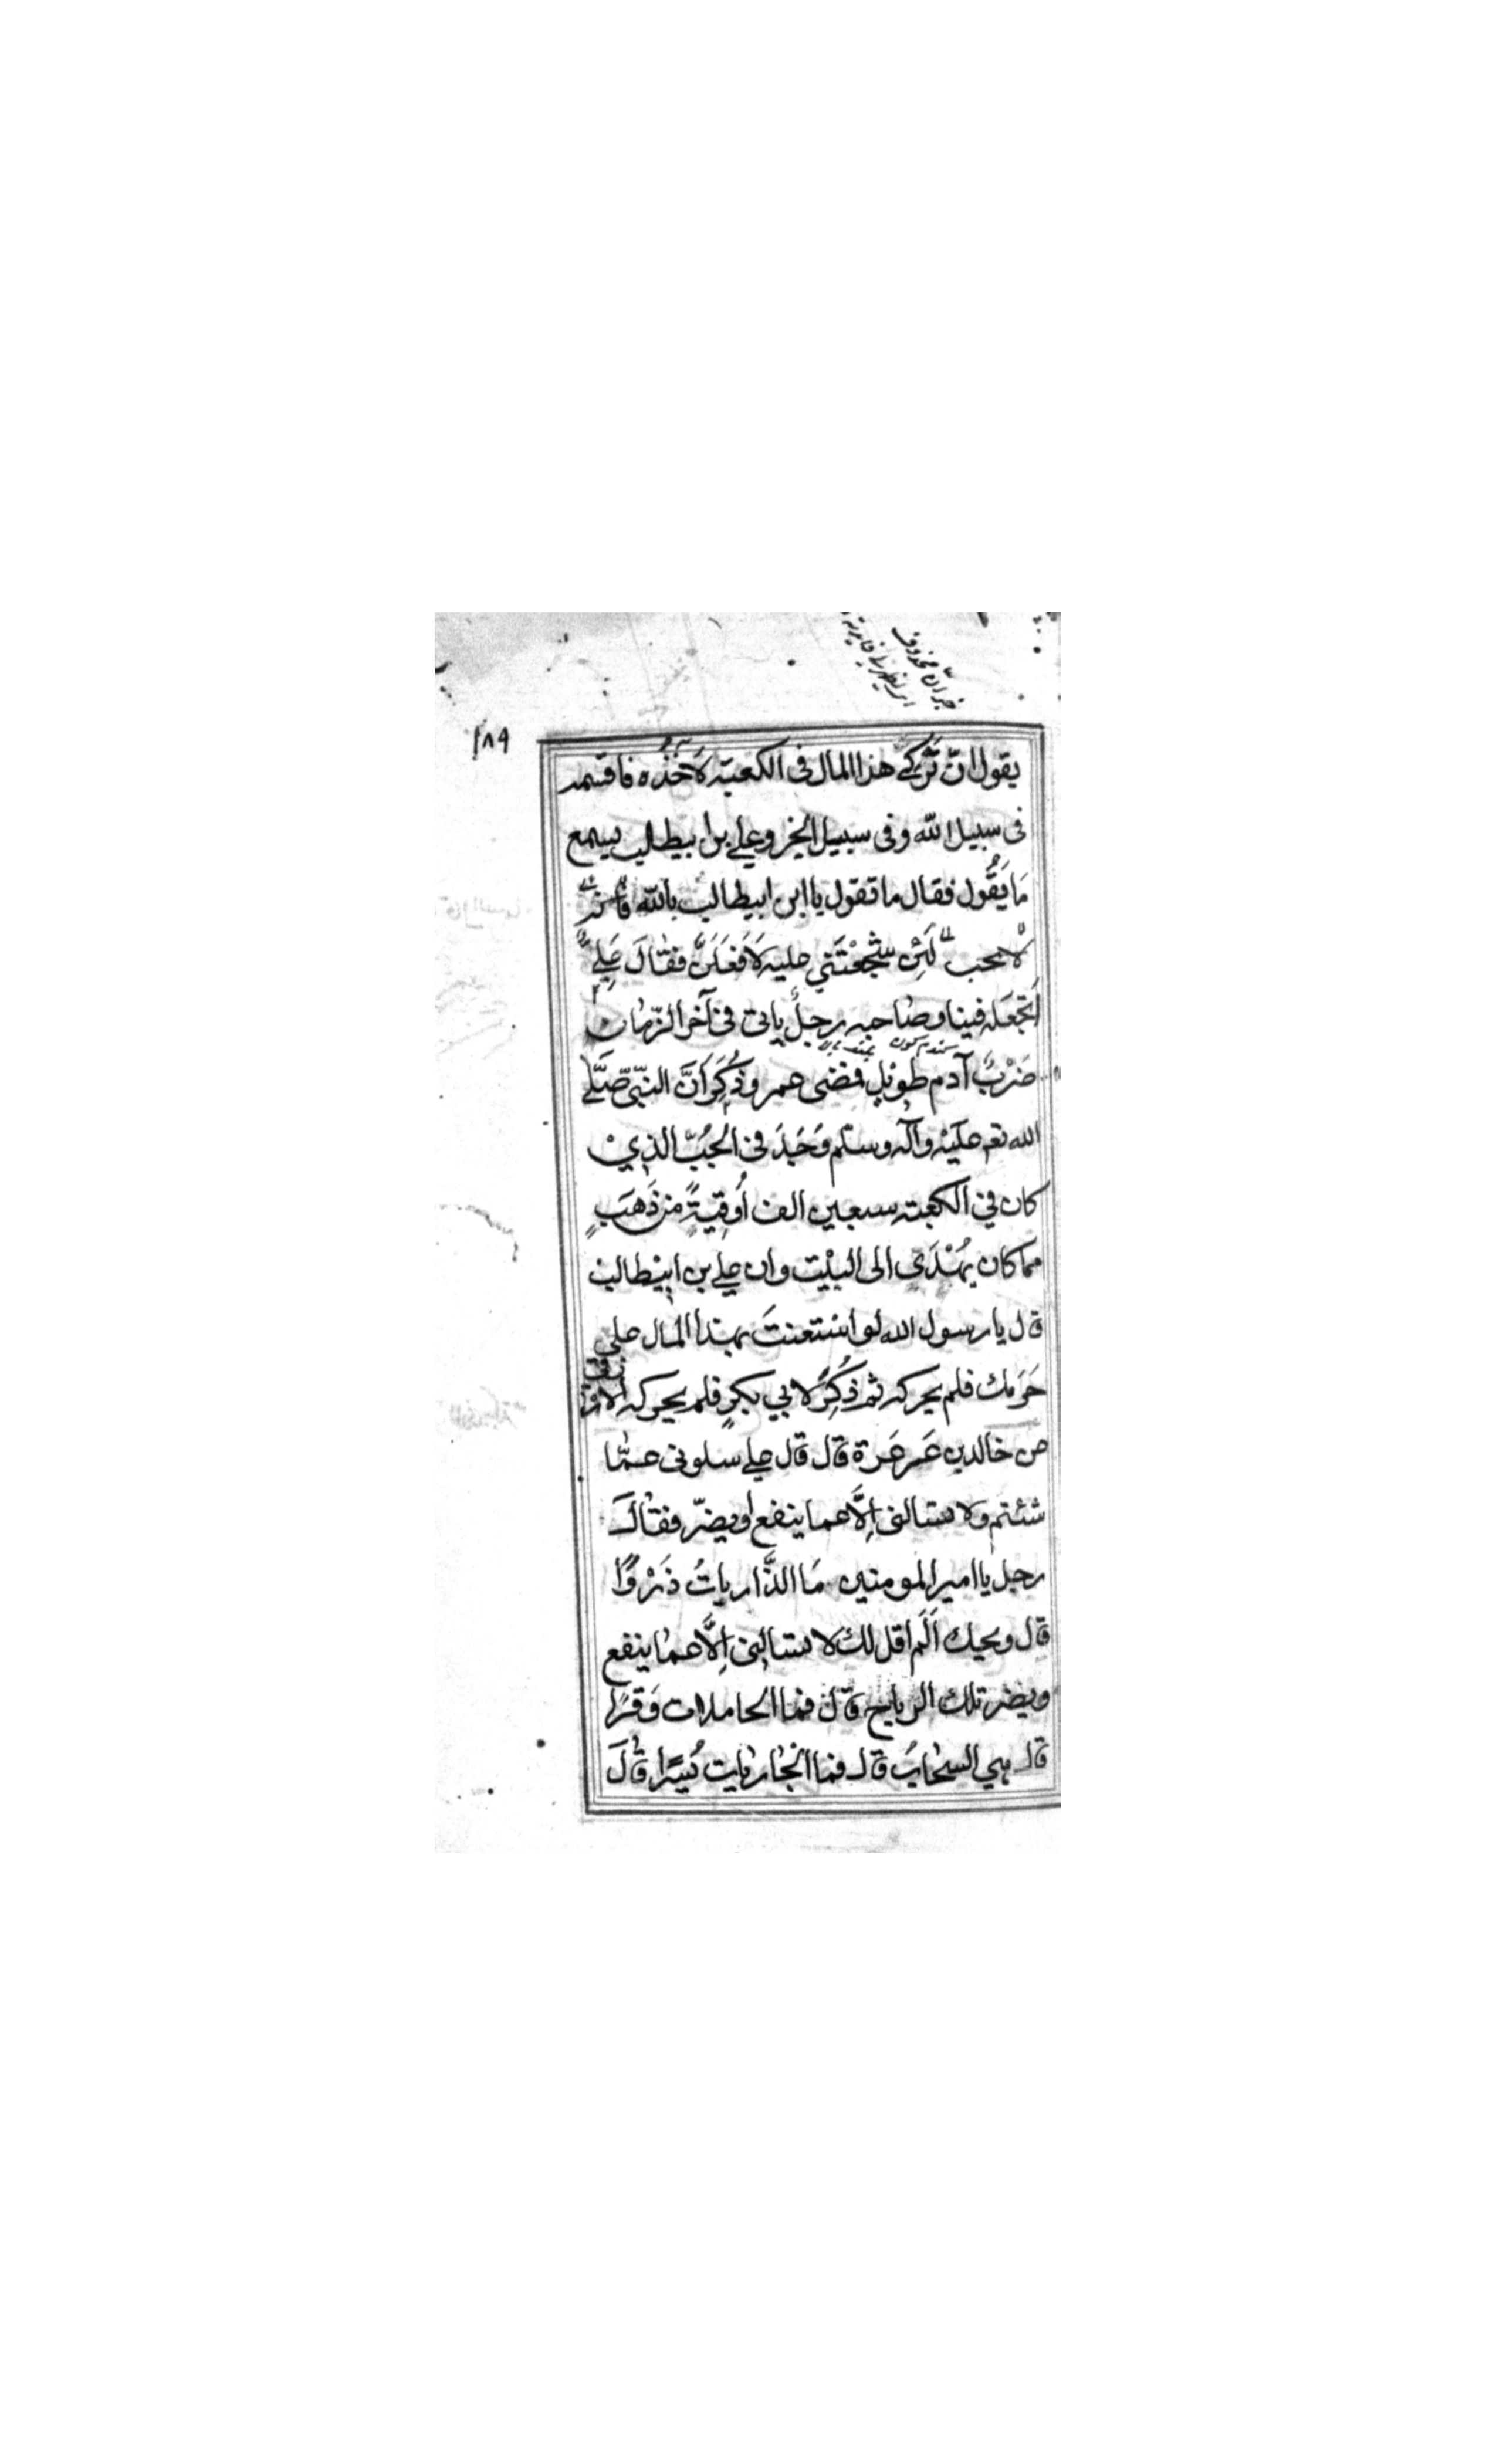 ١٨٩
يقول انّ تَرْكِي هذا المال فى الكعبة لآخُذُه فاقسمه
فى سبيل الله وفى سبيل الخير وعلي بن ابيطالب يسمع
مَا يَقُول فقال ما تقول يا ابن ابيطالب بالله
لَئِن شجعْتَني عليه لَافعَلَنَّ فقالَ عَلِي
اَتجعَله فينا وصاحبه رجلٌ ياتى فى آخر الزّمان
ضَرْبٌ آدم طويل فمضى عمر وذُكِرَ أنَّ النبيّ صَلَّى
الله تعم عليْه وآله وسلّم وَجَدَ فى الجُبّ الذيْ
كان في الكعبة سبعين الف أُوقِيةً من ذَهَبٍ
مما كان يُهْدَي الى البيْت وان علي بن ابيْطالب
قال يا رسول الله لو استعنتَ بهذا المال على
حَرَبك فلم يحركه ثم ذُكِرَ لابي بكرٍ فلم يحركه الازرقى
عن خالد بن عَرعَرة قال قال علي سلونى عمّا
شئتم ولا تسالنى اِلَّا عما ينفع اويضرّ فقالَ
رجل يا امير المومنين مَا الذَّاريات ذَرْوًا
قال ويحك اَلَم اقل لك لا تسالنى اِلَّا عما ينفع
ويضر تلك الرياح قال فما الحاملات وَقْرًا
قال هي السحابُ قال فما الجاريات يُسرًا قالَ